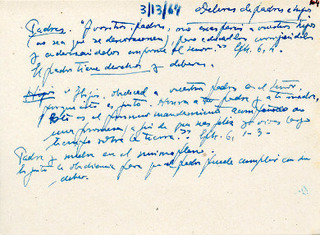 3/13/64 Deberes de padres e hijos
Padres: "Y vosotros padres, no exasperéis a vuestros hijos
no sea que se desmoronen, pero educadlos, corrigiéndoles
y enderezándoles conforme al Señor." Efe. 6, 4.
El padre tiene derechos y deberes.
Hijos: "Hijos, obedeced a vuestros padres en el Señor
porque esto es justo. Honra a tu padre y a tu madre,
Este es el primer mandamiento
una promesa, a fin de que seas feliz y vivas largo
tiempo sobre la tierra." Efe. 6, 1-3.
Padre y madre en el mismo plano.
la obediencia para que el padre puede cumplir con su
deber.